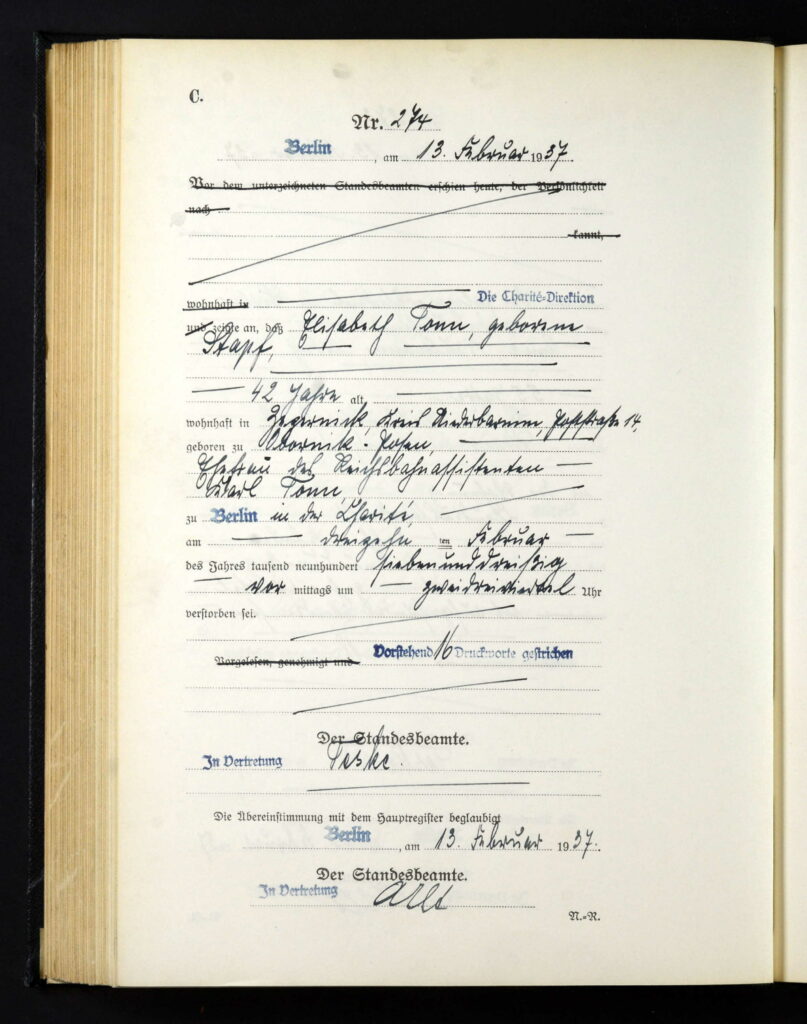 C.
Nr. 274
Berlin, am 13. Februar 1937.
Vor dem unterzeichneten Standesbeamten erschien heute, der Persönlichkeit
nach
kannt,
wohnhaft in Die Charité-Direktion
und zeigte an, daß Elisabeth Tonn, geborene
Stapf,
42 Jahre alt,
wohnhaft in Zepernick, Kreis Niederbarnim, Poststraße 14,
geboren zu Obornik - Posen,
Ehefrau des Reichsbahnassistenten
Karl Tonn,
zu Berlin in der Charité,
am dreizehn ten Februar
des Jahres tausend neunhundert siebenunddreißig
vor mittags um zweidreiviertel Uhr
verstorben sei.
Vorgelesen, genehmigt und Vorstehend 16 Druckworte gestrichen
Der Standesbeamte.
In Vertretung Teske.
Die Übereinstimmung mit dem Hauptregister beglaubigt
Berlin, am 13. Februar 1937.
Der Standesbeamte.
In Vertretung Alt
N.=R.